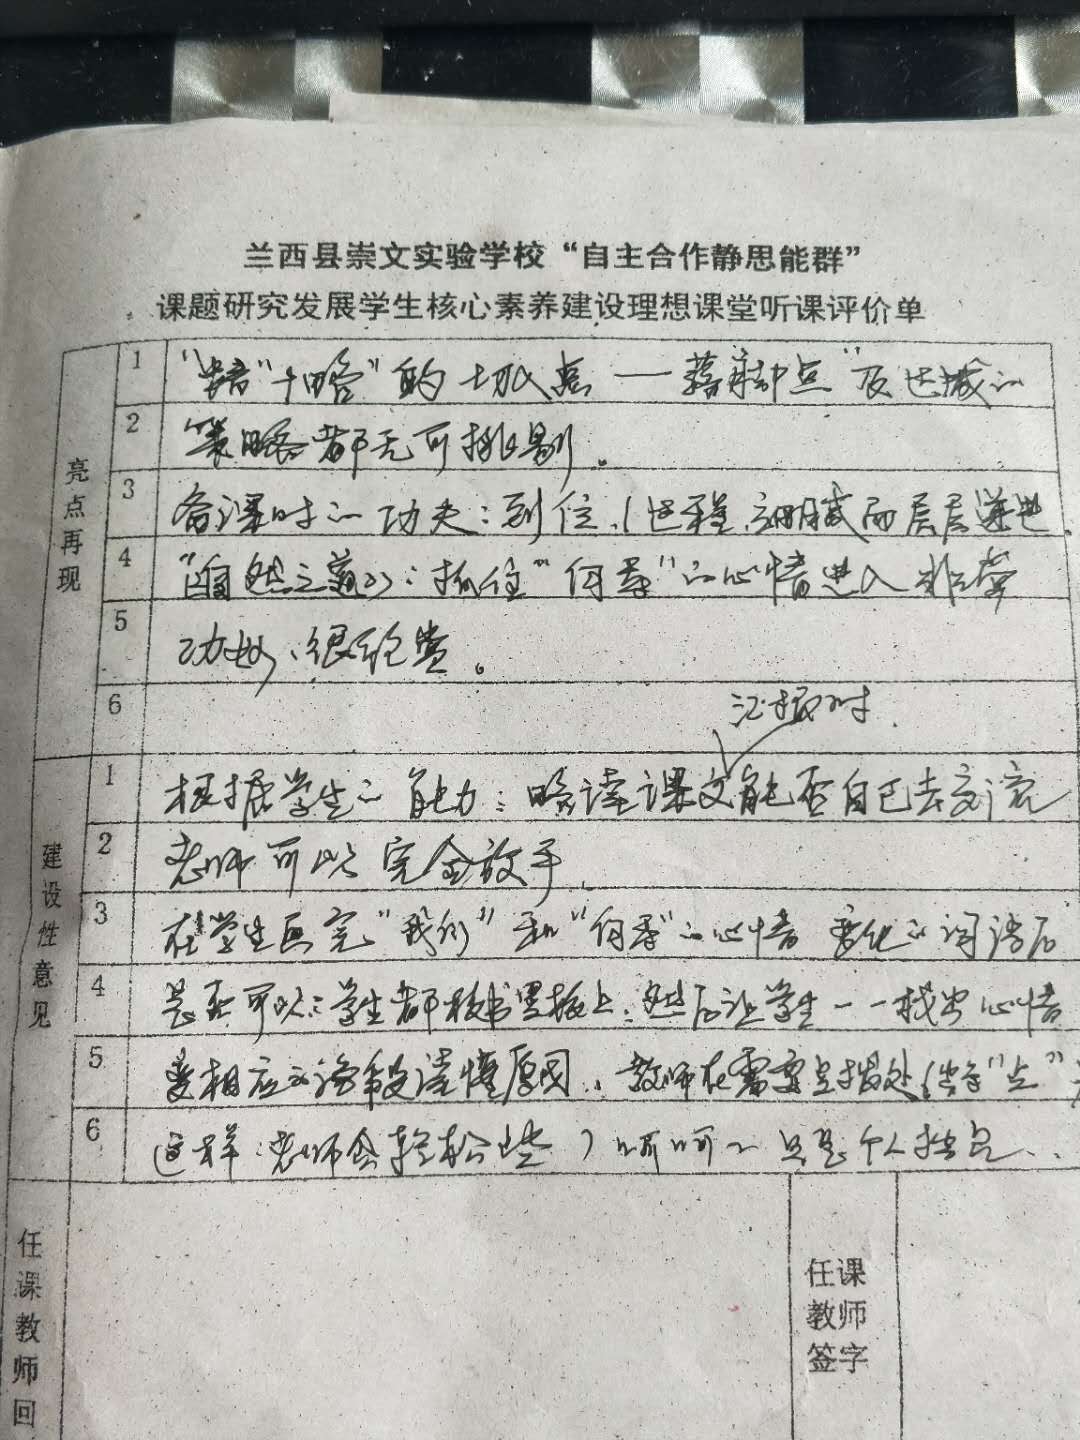 兰西县崇文实验学校“自主合作静思能群”
课题研究发展学生核心素养建设理想课堂听课评价单
亮点再现
1 的切入点一 点”及达成的
2 策略都无可挑剔。
3 备课时的功夫:到位,(过程 细腻而层层递进。
4 “自然之道》:抓住“向导”的心情进入非常
5 功女,很经典。
6
汇报时
建设性意见
1 根据学生的能力:略读课文能否自己去交流
2 老师可以完全放手
3 在学生画完“我们”和“向导”的心情变化的词语后
4 是否可以:学生都板书黑板上,然后让学生一一找出心情
5 变相应的语段读懂原因、教师在需要点拨处给予“点”
6 这样:老师会轻松些)呵呵~只是个人拙见..
任课教师回
任课
教师
签字